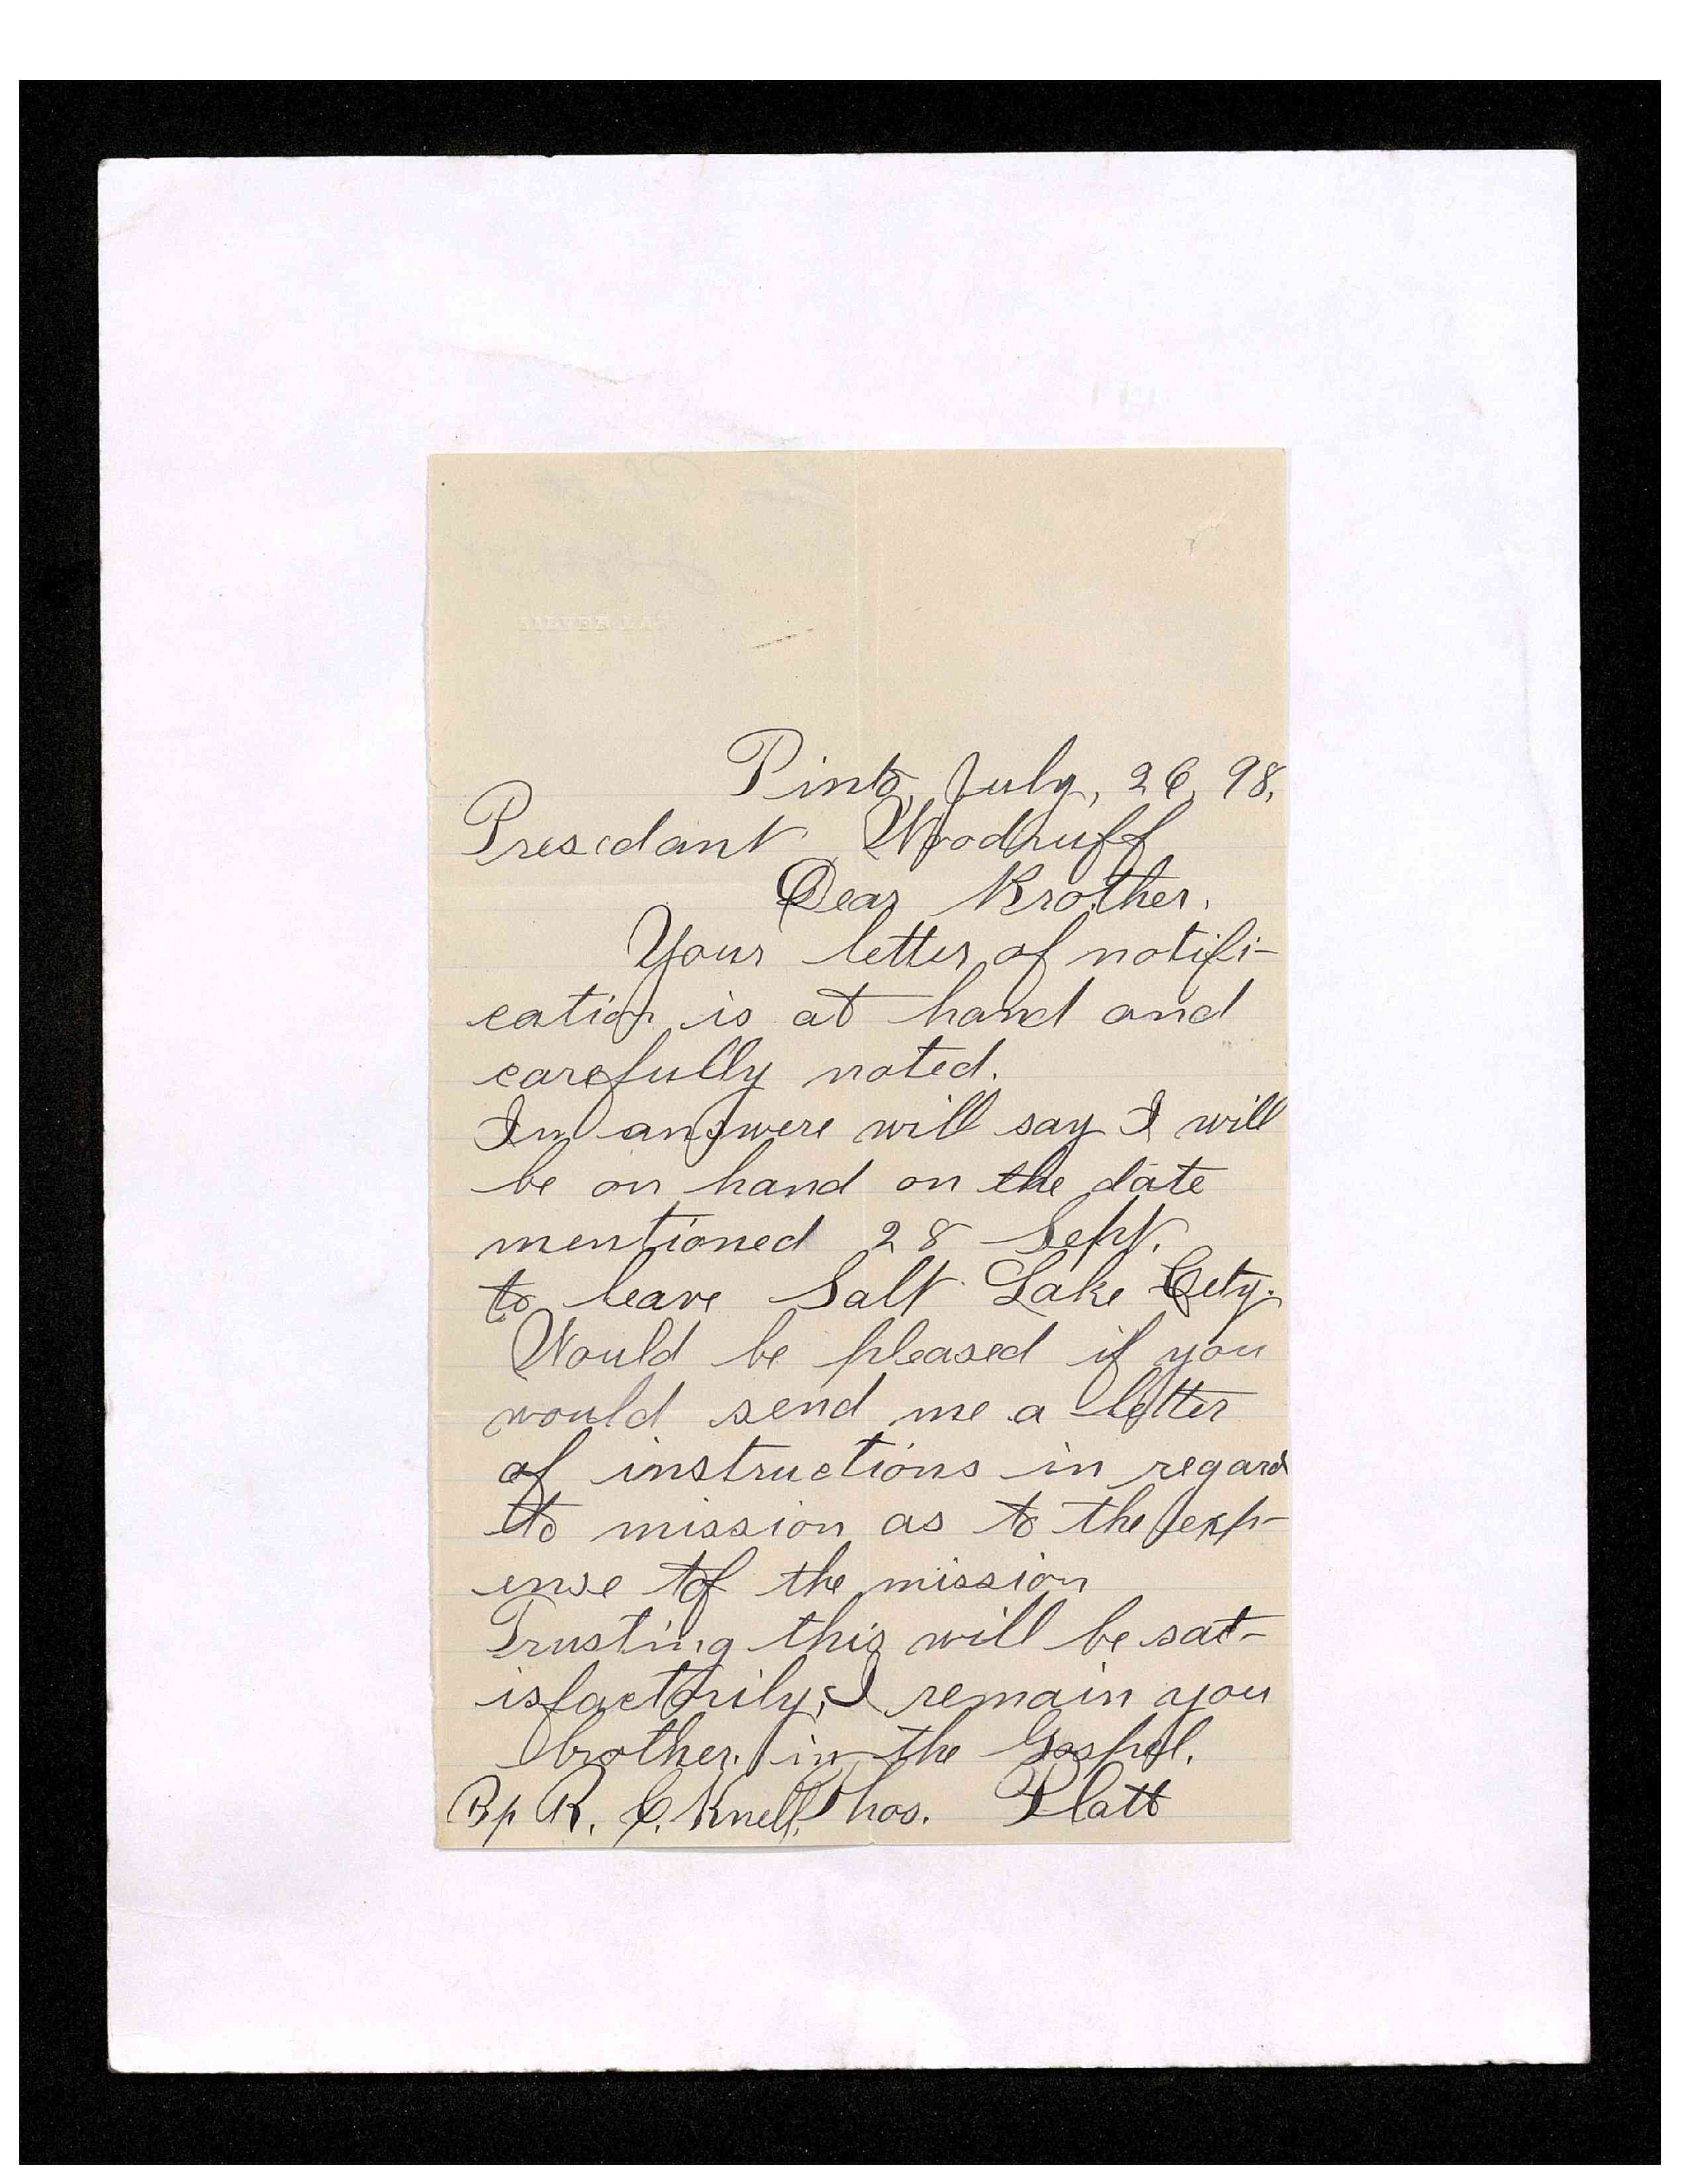 Pinto, July, 26, 98,
Presedant Woodruff
Dear Brother.
Your letter of notifi-
cation is at hand and
carefully noted.
In answere will say I will
be on hand on the date
mentioned 28 Sept.
to leave Salt Lake City.
Would be pleased if you
would send me a letter
of instructions in regard
to mission as to the exp-
ense of the mission
Trusting this will be sat-
isfactorily, I remain you
brother. in the Gospel.
Bp R. C. Knell, Thos. Platt